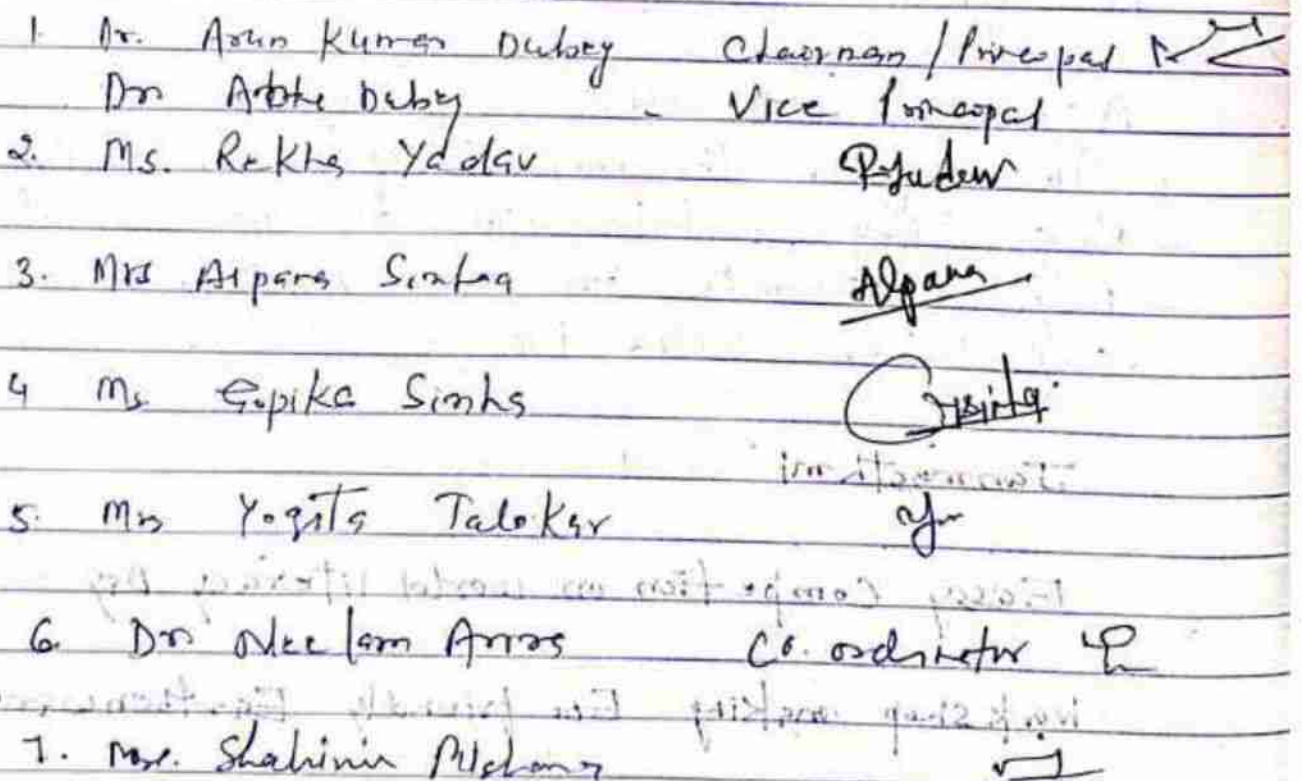 1. Dr. Arun Kumar Dubey Chairman / Principal
Dr Abha Dubey - Vice Principal
2. Ms. Rekha Yadav R. Yadav
3. Mrs Alpana Sinha Alpana
4 Ms Gopika Sinha GSinha
5. Mrs Yogita Talokar
6. Dr Neelam Arora Co. ordinator
7. Mrs. Shahinin